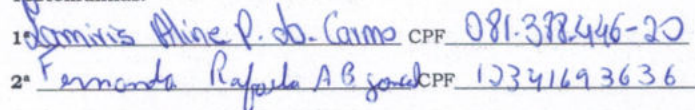 1ª Lamiris Aline P. do. Carmo CPF 081.378.446-20
2ª Fernanda Rafaela A B CPF 12341693636